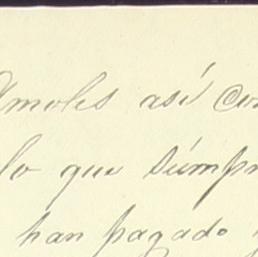 Amoles así co
lo que siémpr
han pagado